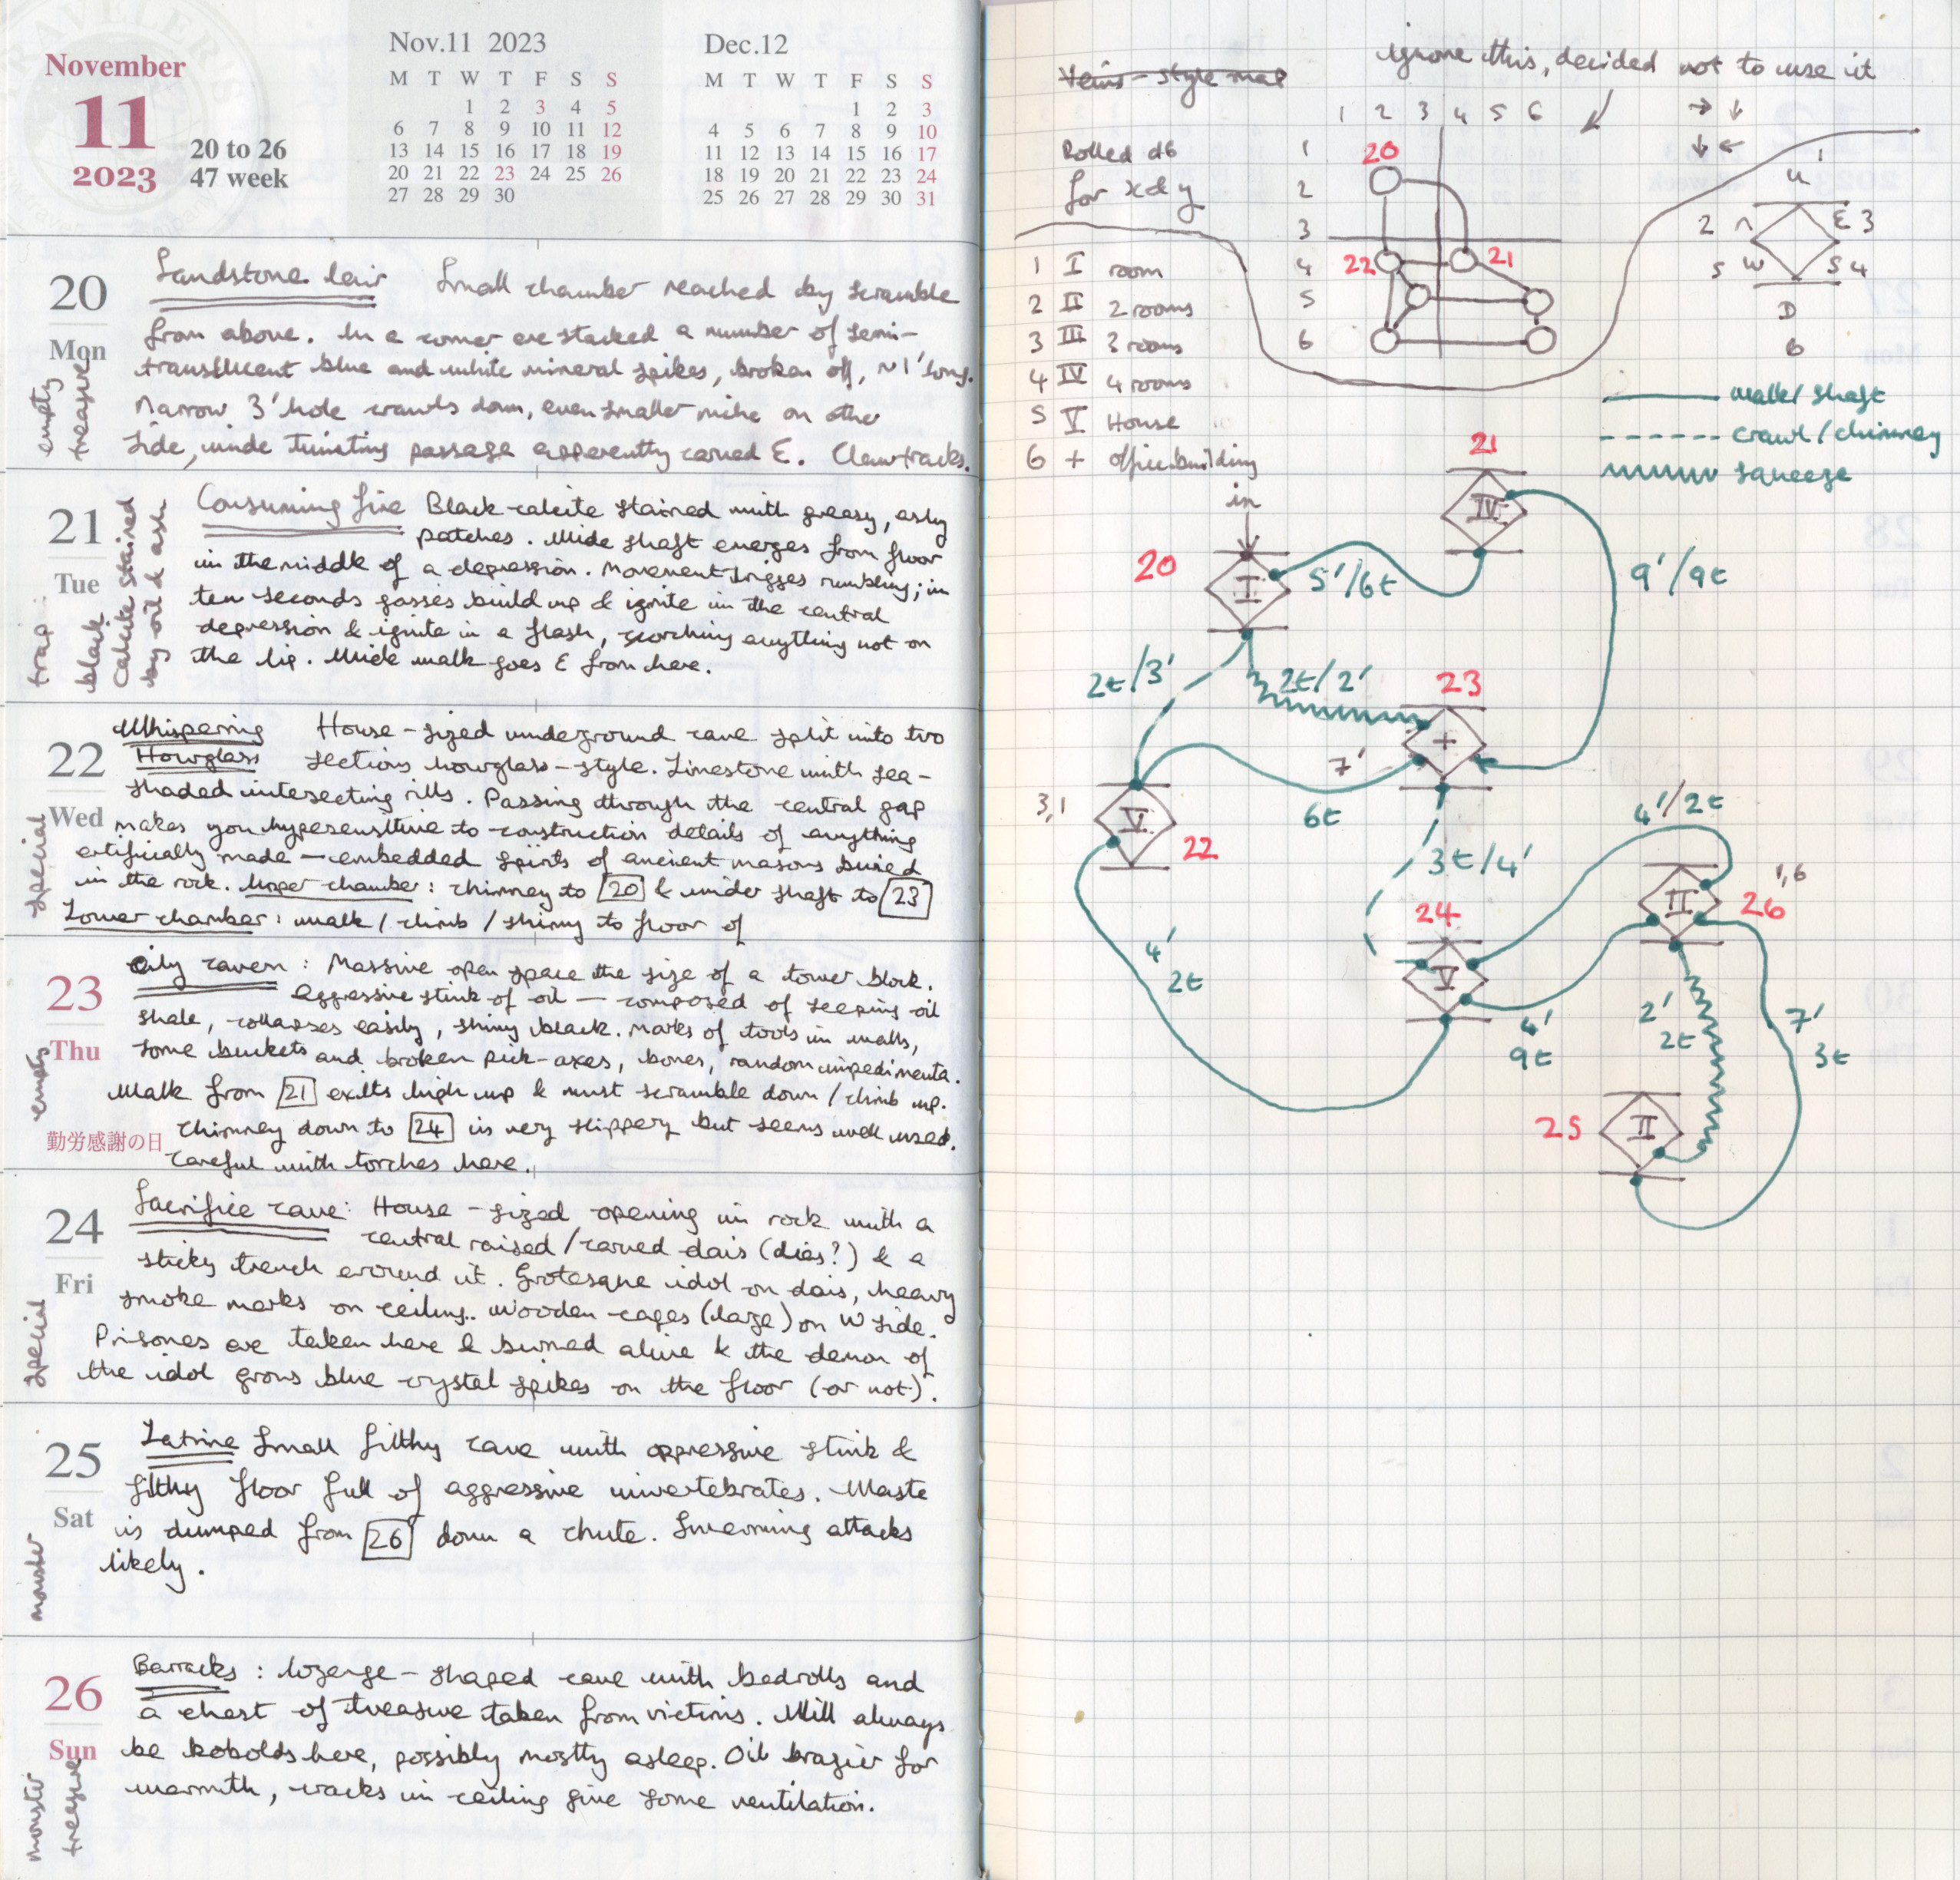 November
11
2023
20 to 26
47 week
Nov.11 2023
M T W T F S S
1 2 3 4 5
6 7 8 9 10 11 12
13 14 15 16 17 18 19
20 21 22 23 24 25 26
27 28 29 30
Dec.12
M T W T F S S
1 2 3
4 5 6 7 8 9 10
11 12 13 14 15 16 17
18 19 20 21 22 23 24
25 26 27 28 29 30 31
20
Mon
empty
treasure
Sandstone lair Small chamber reached by scramble
from above. In a corner are stacked a number of semi-
translucent blue and white mineral spikes, broken off, ~1' long.
Narrow 3' hole crawls down, even smaller niche on other
side, wide twisting passage apparently carved E. Claw tracks.
21
Tue
trap
black
calcite stained
by oil & ash
Consuming fire Black calcite stained with greasy, ashy
patches. Wide shaft emerges from floor
in the middle of a depression. Movement trigges rumbling; in
ten seconds gasses build up & ignite in the central
depression & ignite in a flash, scorching anything not on
the lip. Wide walk goes E from here.
22
Wed
special
Whispering House-sized underground cave split into two
Hourglass sections hourglass-style. Limestone with sea-
shaded intersecting rills. Passing through the central gap
makes you hypersensitive to construction details of anything
artificially made — embedded spirits of ancient masons buried
in the rock. Upper chamber: chimney to 20 & wide shaft to 23
Lower chamber: walk / climb / shimy to floor of
23
Thu
勤労感謝の日
empty
Oily cavern: Massive open space the size of a tower block.
Aggressive stink of oil — composed of seeping oil
shale, collapses easily, shiny black. Marks of tools in walls,
some buckets and broken pick-axes, bones, random impedimenta.
Walk from 21 exits high up & must scramble down / climb up.
Chimney down to 24 is very slippery but seems well used.
Careful with torches here.
24
Fri
special
Sacrifice cave: House-sized opening in rock with a
central raised / carved dais (dias?) & a
sticky trench around it. Grotesque idol on dais, heavy
smoke marks on ceiling. Wooden cages (large) on W side.
Prisones are taken here & burned alive & the demon of
the idol grows blue crystal spikes on the floor (or not).
25
Sat
monster
Latrine Small filthy cave with oppressive stink &
filthy floor full of aggressive invertebrates. Waste
is dumped from 26 down a chute. Swarming attacks
likely.
26
Sun
monster
treasure
Barracks: lozenge-shaped cave with bedrolls and
a chest of treasure taken from victims. Will always
be kobolds here, possibly mostly asleep. Oil brazier for
warmth, cracks in ceiling give some ventilation.
Veins-style map
ignore this, decided not to use it
1 2 3 4 5 6
Rolled d6
for x & y
1
2
3
4
5
6
20
22
21
→ ↓
↓ ←
1
U
2 N E 3
5 W S 4
D
6
1 I room
2 II 2 rooms
3 III 3 rooms
4 IV 4 rooms
5 V House
6 + office building
walk/shaft
crawl/chimney
squeeze
in
20
I
21
IV
5'/6t
9'/9t
2t/3'
2t/2'
23
+
7'
6t
3,1
V
22
4'
2t
3t/4'
24
V
4'/2t
4'
9t
1,6
II
26
2'
2t
7'
3t
25
II